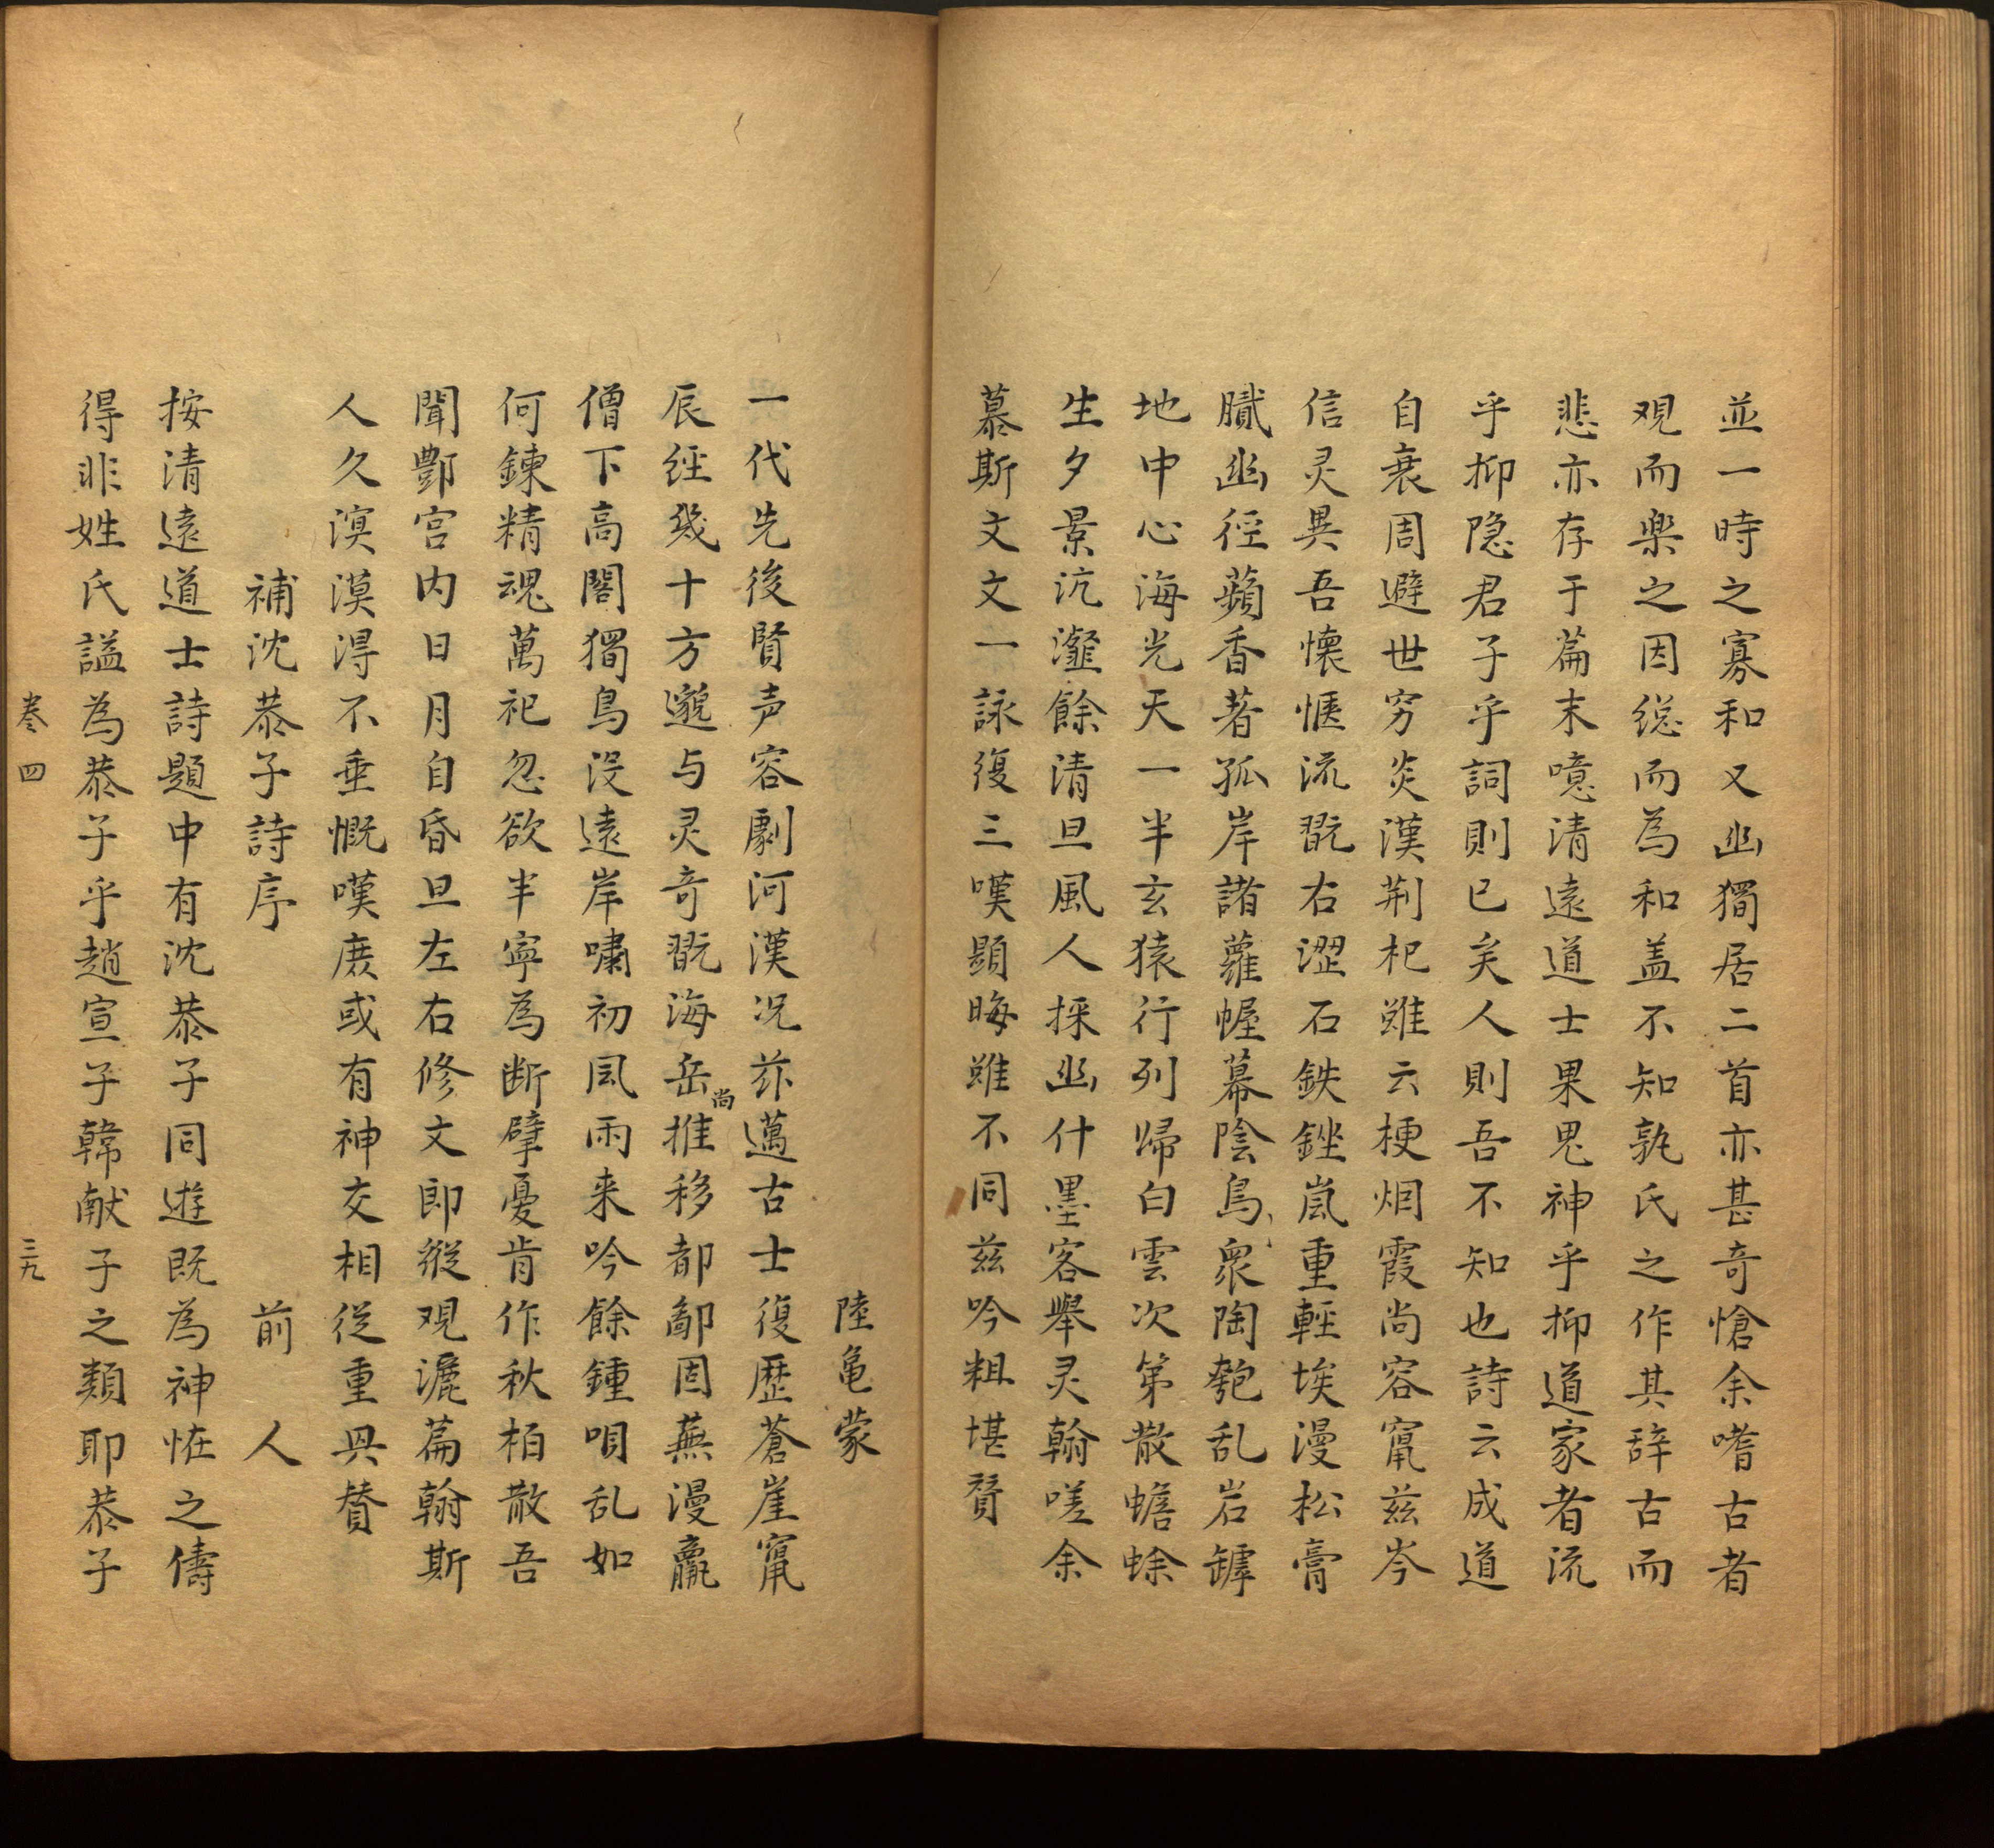 並一時之寡和又幽獨居二首亦甚奇愴余嗜古者
观而樂之因緫而為和盖不知孰氏之作其辞古而
悲亦存于篇末噫清遠道士果鬼神乎抑道家者流
乎抑隐君子乎詞則已矣人則吾不知也詩云成道
自衰周避世穷炎漢荆杞雖云梗烟霞尚容竄兹岑
信灵異吾懷惬流翫右澀石鉄銼嵐重輕埃漫松膏
膩幽徑蘋香著孤岸諸蘿幄幕陰鳥衆陶匏乱岩罅
地中心海光天一半玄猿行列歸白雲次第散蟾蜍
生夕景沆瀣餘清旦風人採幽什墨客舉灵翰嗟余
慕斯文文一詠復三嘆顕晦雖不同兹吟粗堪賛
陸亀蒙
一代先後賢声容劇河漢况茲邁古士復歴蒼崖竄
辰経幾十方邈与灵奇翫海岳尚推移都鄙固蕪漫羸
僧下高閣獨鳥没遠岸嘯初風雨来吟餘鍾唄乱如
何鍊精魂萬祀忽欲半寧為断擘憂肯作秋栢散吾
聞酆宫内日月自昏旦左右修文郎縱观灑篇翰斯
人久溟漠淂不垂慨嘆庶或有神交相従重興賛
補沈恭子詩序
前人
按清遠道士詩題中有沈恭子同遊既為神恠之儔
得非姓氏謚為恭子乎趙宣子韓献子之類耶恭子
卷四
三九